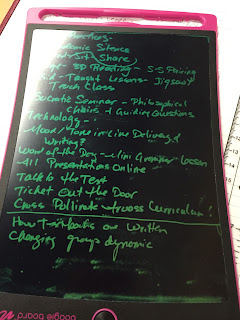 Academic Silence
Sit (Share)
3D Reading - 5-5 Pairing
Taught Lessons - Jigsaw
Teach Class
Socratic Seminar - Philosophical
Chairs + Guiding Questions
Technology -
Mood/Tone in live Delivery &
Writing?
Word of the Day - Mini Grammar Lesson
All Presentations Online
Talk to the Text
Ticket Out the Door
Cross Pollinate Across Curriculum!
How T- on Written
Changing group dynamic
boogie board